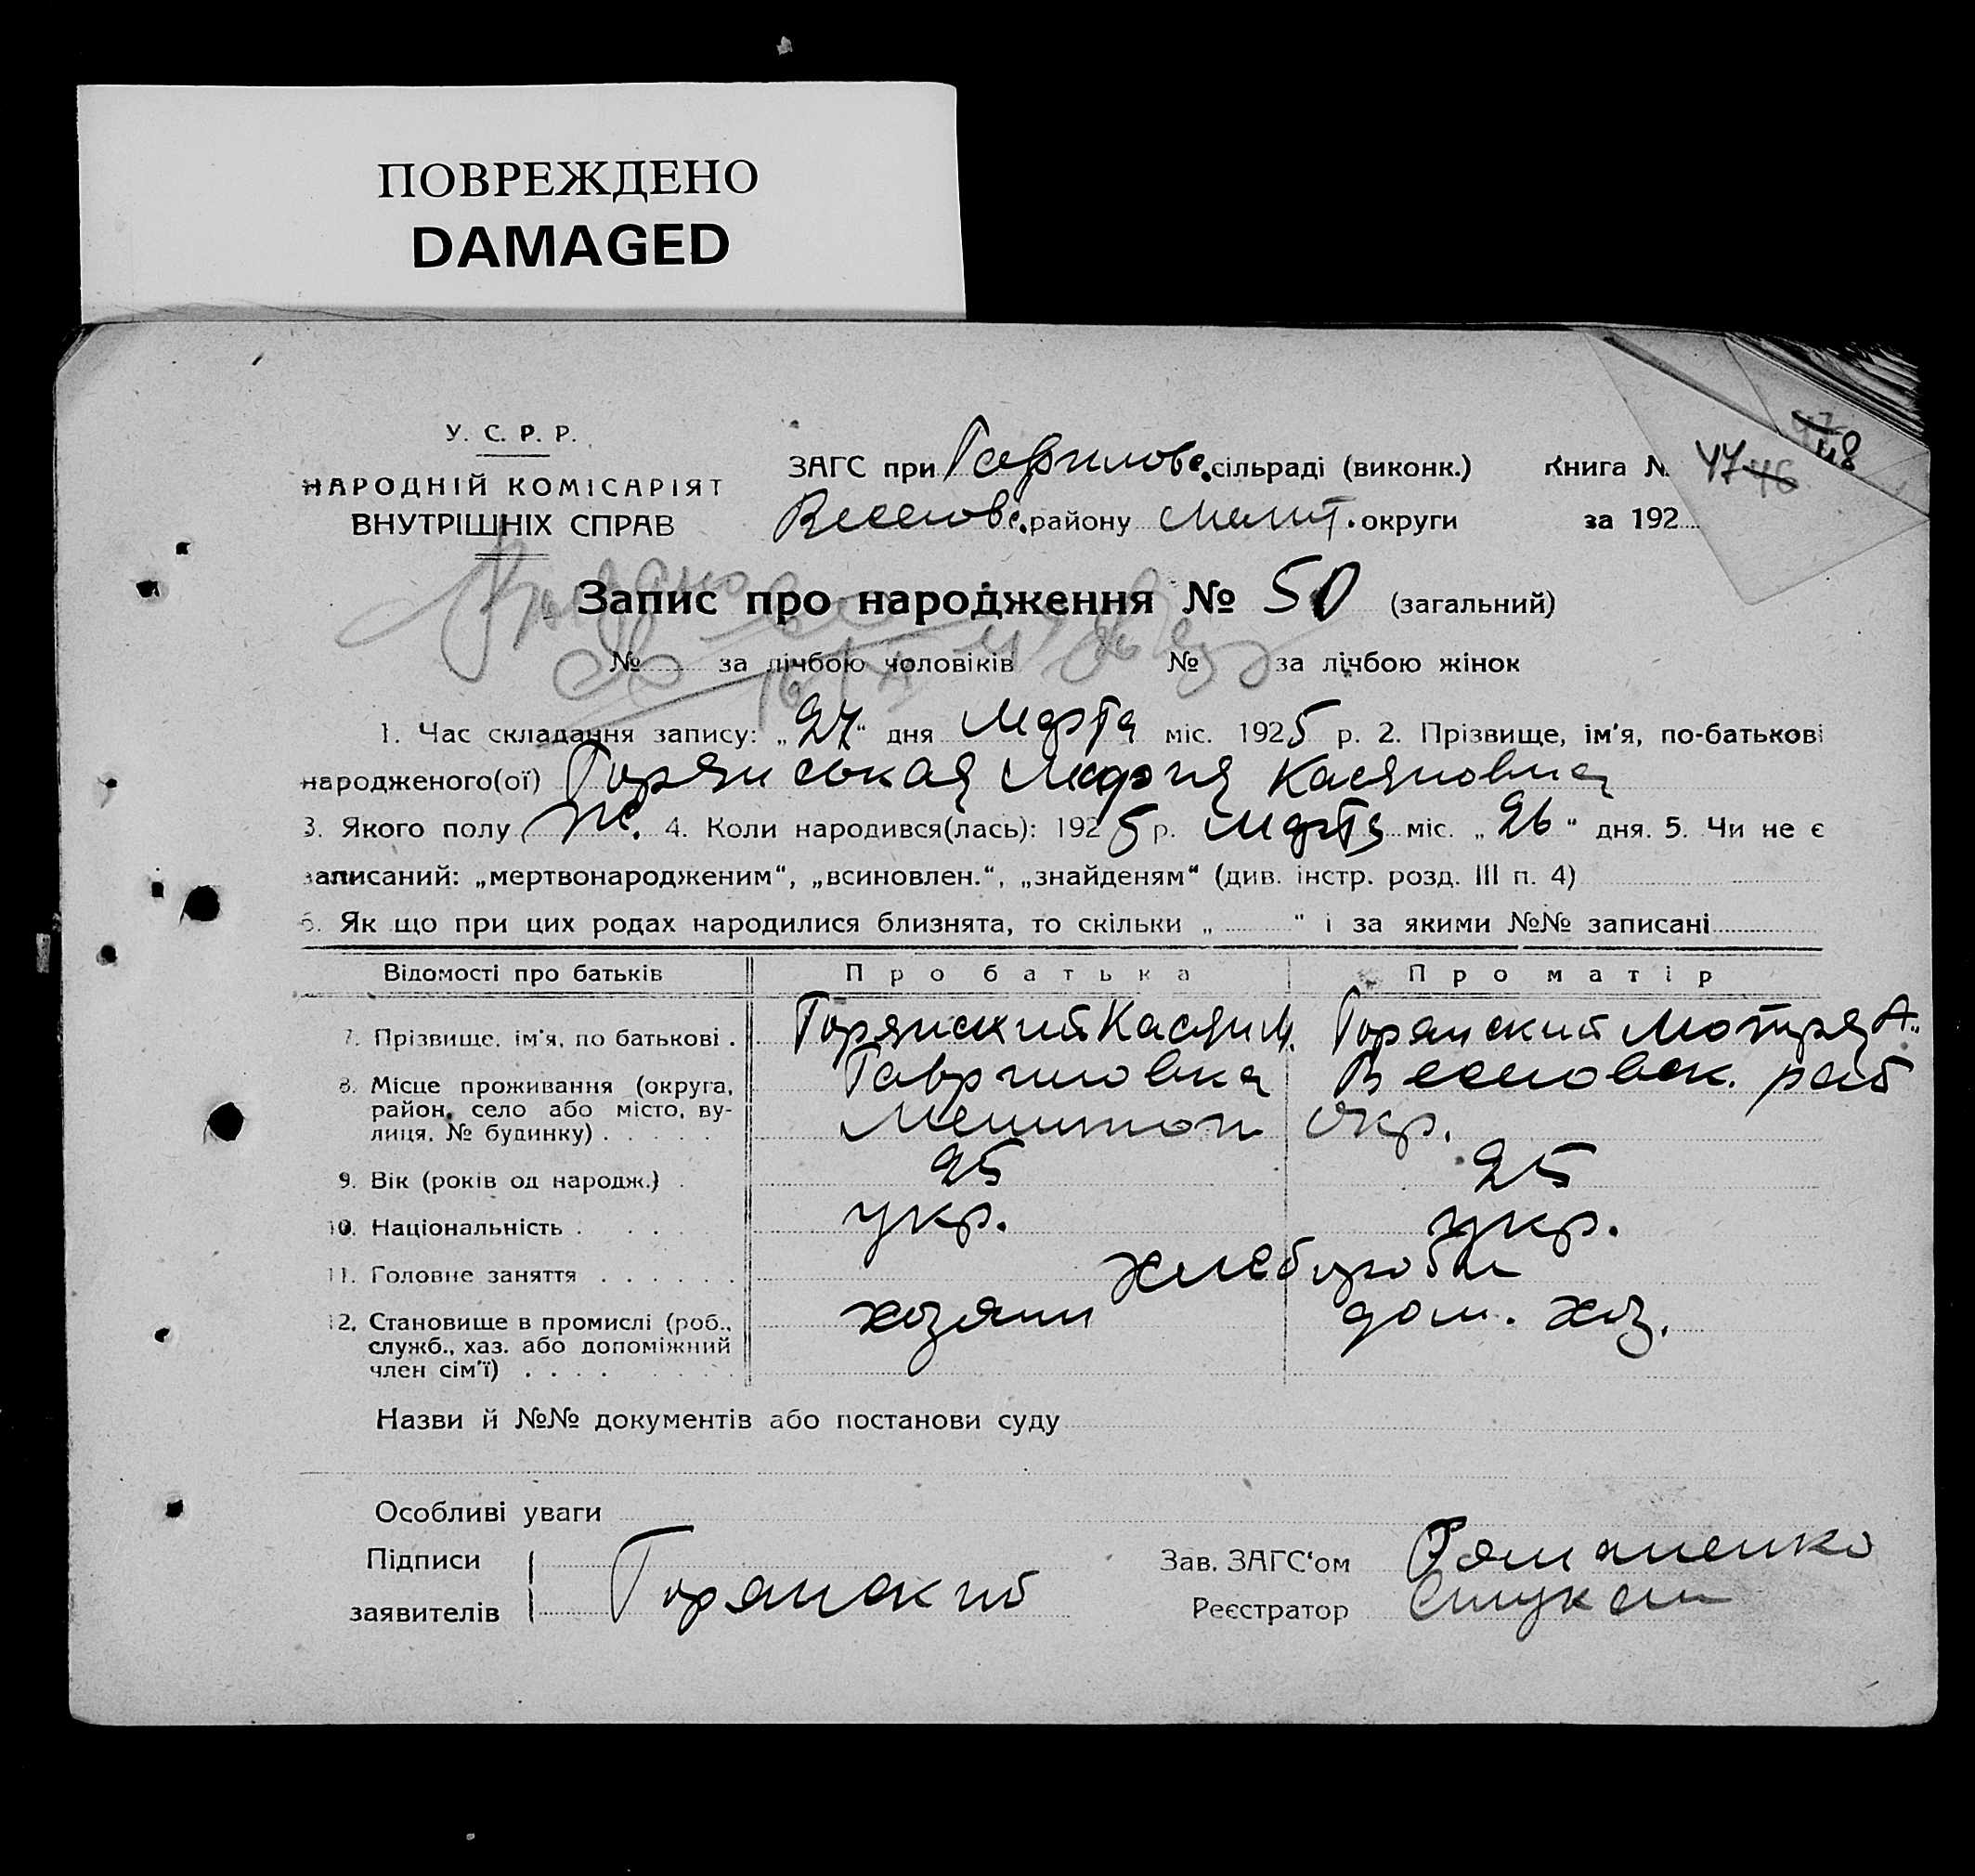 ПОВРЕЖДЕНО
DAMAGED
У. С. Р. Р.
НАРОДНІЙ КОМІСАРІЯТ
ВНУТРІШНІХ СПРАВ
ЗАГС при Гаврилове. сільраді (виконк.)
Веселовс. району Мелит. округи
Книга №
за 192
47 46
48
Запис про народження № 50 (загальний)
№ за лічбою чоловіків № за лічбою жінок
1. Час складання запису: „27“ дня Марта міс. 1925 р. 2. Прізвище, ім'я, по-батькові
народженого(ої) Горянськая Мария Касяновна
3. Якого полу ж. 4. Коли народився(лась): 1925 р. Марта міс. „26“ дня. 5. Чи не є
записаний: „мертвонародженим“, „всиновлен.“, „знайденям“ (див. інстр. розд. III п. 4)
6. Як що при цих родах народилися близнята, то скільки „ “ і за якими №№ записані
Відомості про батьків Про батька Про матір
7. Прізвище, ім'я, по батькові . Горянский Касян М. Горянский Мотря А.
8. Місце проживання (округа, Гавриловка Веселовск. рай
район, село або місто, ву-
лиця, № будинку) . . . . . Мелитоп окр.
9. Вік (років од народж.) . 25 25
10. Національність . . . . укр. укр.
11. Головне заняття . . . . . . хлебороби
12. Становище в промислі (роб., хозяин дом. хоз.
служб., хаз. або допоміжний
член сім'ї) . . . .
Назви й №№ документів або постанови суду
Особливі уваги
Підписи
заявителів Горянский
Зав. ЗАГС‘ом Романенко
Реєстратор